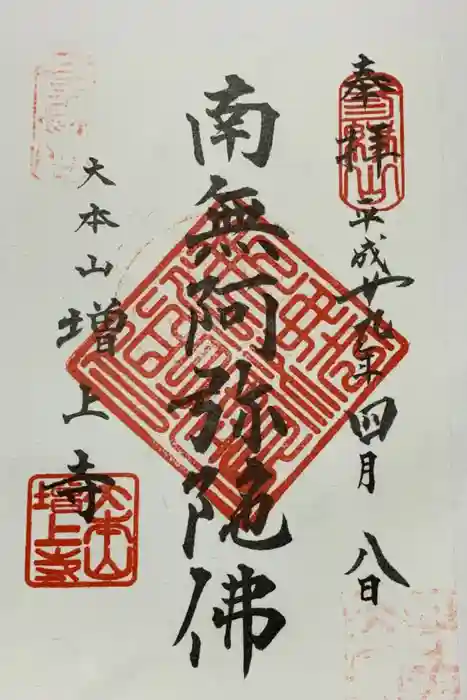 奉拝 平成廿九年四月八日
南無阿弥陀佛
大本山 増上寺
大本山
増上寺